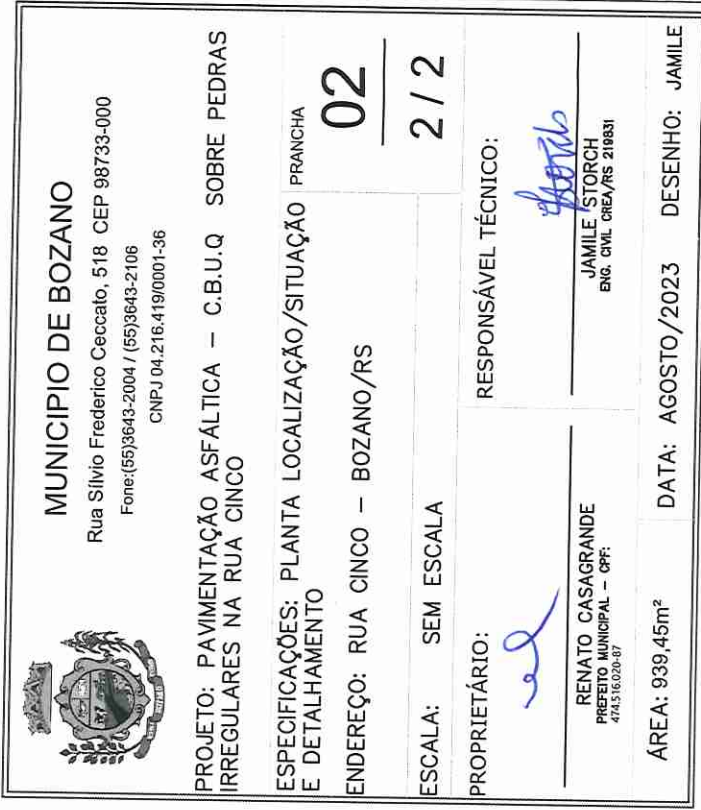 MUNICIPIO DE BOZANO
Rua Sílvio Frederico Ceccato, 518 CEP 98733-000
Fone:(55)3643-2004 / (55)3643-2106
CNPJ 04.216.419/0001-36
PROJETO: PAVIMENTAÇÃO ASFÁLTICA – C.B.U.Q SOBRE PEDRAS
IRREGULARES NA RUA CINCO
ESPECIFICAÇÕES: PLANTA LOCALIZAÇÃO/SITUAÇÃO
E DETALHAMENTO
PRANCHA
02
2/2
ENDEREÇO: RUA CINCO – BOZANO/RS
ESCALA: SEM ESCALA
PROPRIETÁRIO:
RENATO CASAGRANDE
PREFEITO MUNICIPAL – CPF:
474.516.020-87
RESPONSÁVEL TÉCNICO:
JAMILE STORCH
ENG. CIVIL CREA/RS 219831
ÁREA: 939,45m²
DATA: AGOSTO/2023
DESENHO: JAMILE